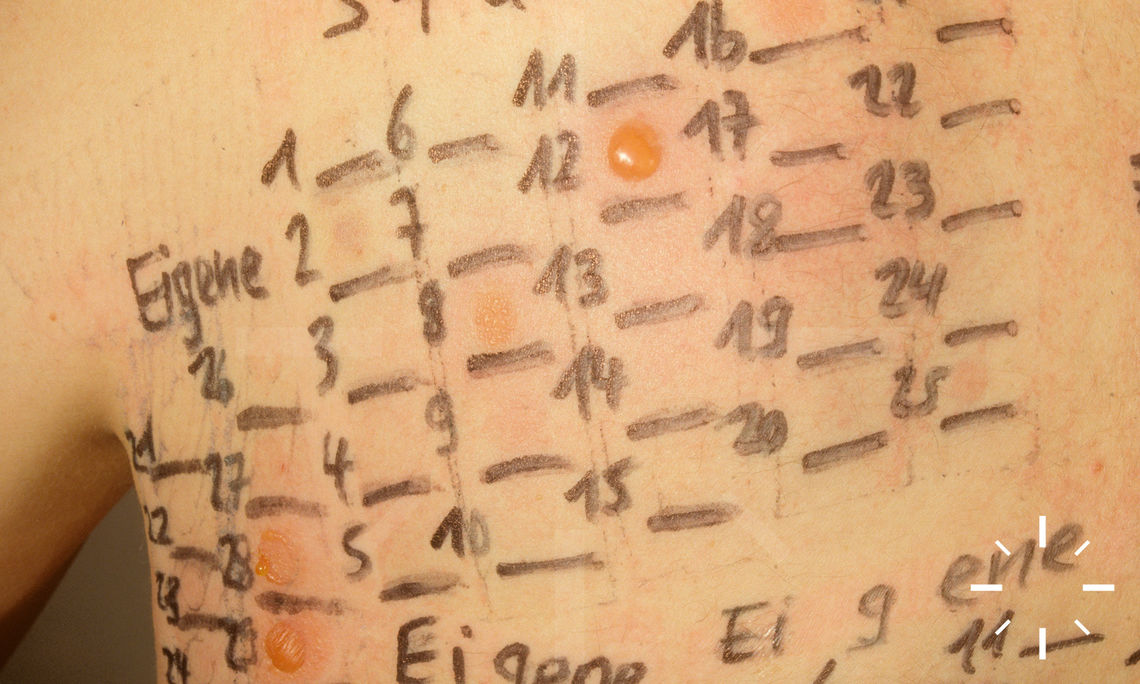 1
2
3
4
5
6
7
8
9
10
11
12
13
14
15
16
17
18
19
20
22
23
24
25
Eigene
26
27
28
21
22
23
24
Eigene
Ei g ene
11